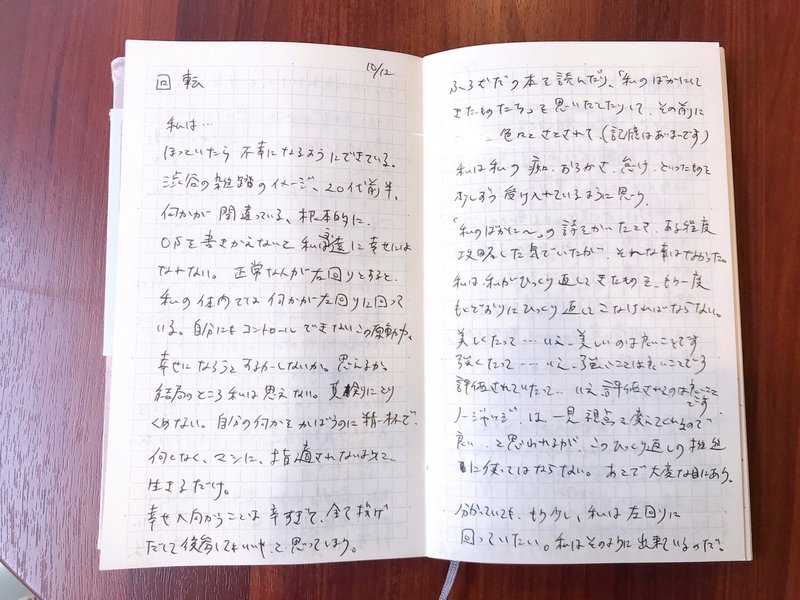 10/12
回転
私は…
ほっていたら 不幸になるようにできている。
渋谷の雑踏のイメージ、20代前半、
何かが間違っている、根本的に。
OSを書きかえないと 私は永遠に幸せには
なれない。正常なんが右回りとすると、
私の体内では 何かが左回りに回って
いる。自分にもコントロールできないこの原動力。
幸せになろうとするか―しないか。思えるか。
結局のところ私は思えない。真剣にとり
くめない。自分の何かをかばうのに精一杯で、
何となく、マシに、指適されないように
生きるだけ。
幸せ入向かうことは幸すぎて、全て投げ
だして後悔してもいいや、と思ってしまう。
ふろぞだの本を読んだり、「私のばかにして
きたものたち」って思いだしたりして、その前に
色々とさとされて、(記憶はあいまいです)
私は私の 痴、おろかさ、怠け、といったものを
少しずつ受け入れているように思う。
「私のばかに〜」の詩をかいたことで、ある程度
攻略した気でいたが、それな事はなかった。
私は、私がひっくり返してきたものを、もう一度
もとどおりにひっくり返してこなければならない。
美しくたって…いえ、美しいのは良いことです
強くたって…いえ、強いことは良いことです
評価されていたって…いえ評価されてるのは良いこと
です
ノージャッジ は、一見 視点を変えてくれるので
良い、と思われるが、このひっくり返しの推進
に使ってはならない。あとで大変な目にあう。
分かっていても、もう少し、私は 左回りに
回っていたい。私はそのように出来ているのだ。